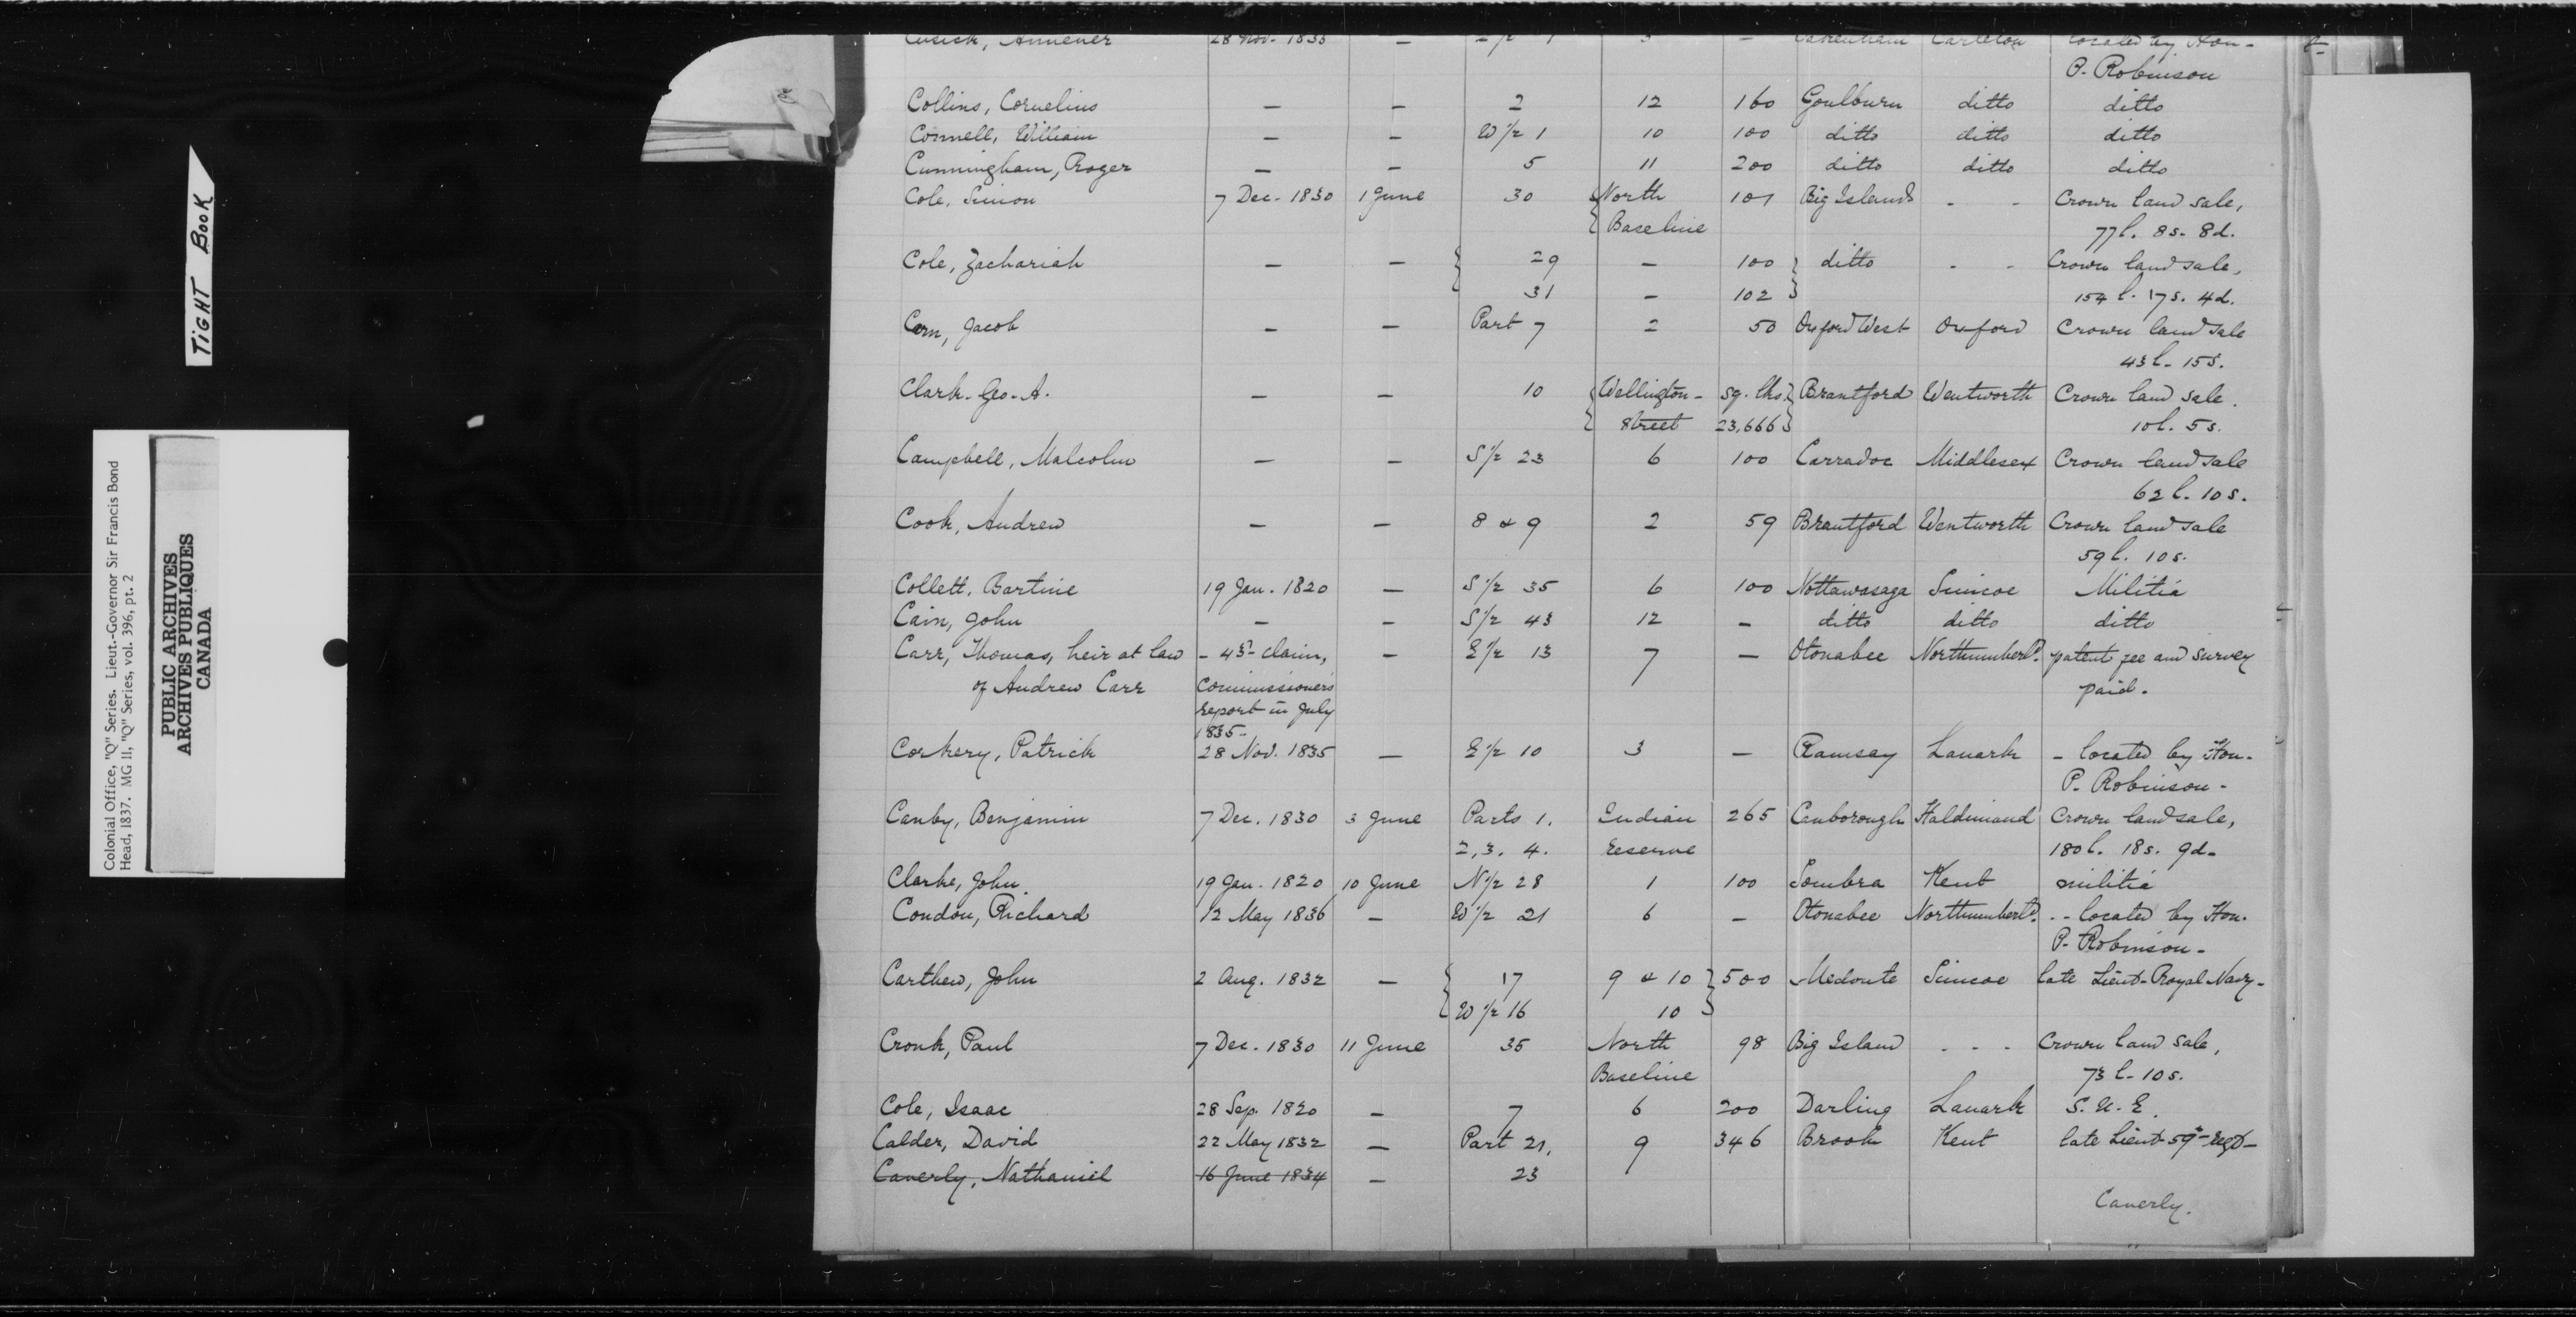 Cusick, 28 Nov. 1835 — 1/2 1 3 — Pakenham Carleton located by Hon-
P. Robinson
Collins, Cornelius — — 2 12 160 Goulburn ditto ditto
Connell, William — — W 1/2 1 10 100 ditto ditto ditto
Cunningham, Roger — — 5 11 200 ditto ditto ditto
Cole, Simon 7 Dec. 1830 1 June 30 North 101 Big Island - - Crown land sale,
Baseline 77l. 8s. 8d.
Cole, Zachariah — — 29 — 100 ditto - - Crown land sale,
31 — 102 154 l. 17s. 4d.
Corn, Jacob — — Part 7 2 50 Oxford West Oxford Crown land sale
43l. 15s.
Clark. Geo. A. — — 10 Wellington- sq. lks. Brantford Wentworth Crown land sale.
Street 23,666 10l. 5s.
Campbell, Malcolm — — S 1/2 23 6 100 Carradoc Middlesex Crown land sale
62l. 10s.
Cook, Andrew — — 8 & 9 2 59 Brantford Wentworth Crown land sale
59l. 10s.
Collett, Bartine 19 Jan. 1820 — S 1/2 35 6 100 Nottawasaga Simcoe Militia
Cain, John — — S 1/2 43 12 — ditto ditto ditto
Carr, Thomas, heir at law - 43d claim, — E 1/2 13 7 — Otonabee Northumberld. patent fee and survey
of Andrew Carr Commissioners paid.
report in July
1835-
Corkery, Patrick 28 Nov. 1835 — E 1/2 10 3 — Ramsay Lanark - located by Hon.
P. Robinson-
Canby, Benjamin 7 Dec. 1830 3 June Parts 1. Indian 265 Canborough Haldimand Crown land sale,
2, 3. 4. reserve 180l. 18s. 9d-
Clarke, John. 19 Jan. 1820 10 June N 1/2 28 1 100 Sombra Kent militia
Condon, Richard 12 May 1836 — W 1/2 21 6 — Otonabee Northumberld. -- located by Hon.
P. Robinson-
Carthew, John 2 Aug. 1832 — 17 9 & 10 500 Medonte Simcoe late Lieut- Royal Navy-
W 1/2 16 10
Cronk, Paul 7 Dec. 1830 11 June 35 North 98 Big Island - - - Crown land sale,
Baseline 73l. 10s.
Cole, Isaac 28 Sep. 1820 — 7 6 200 Darling Lanark S. U. E.
Calder, David 22 May 1832 — Part 21, 9 346 Brook Kent late Lieut 59th regt-
Canerly, Nathaniel 16 June 1834 — 23
Canerly.
TIGHT BOOK
Colonial Office, "Q" Series. Lieut.-Governor Sir Francis Bond
Head, 1837. MG 11, "Q" Series, vol. 396, pt. 2
PUBLIC ARCHIVES
ARCHIVES PUBLIQUES
CANADA